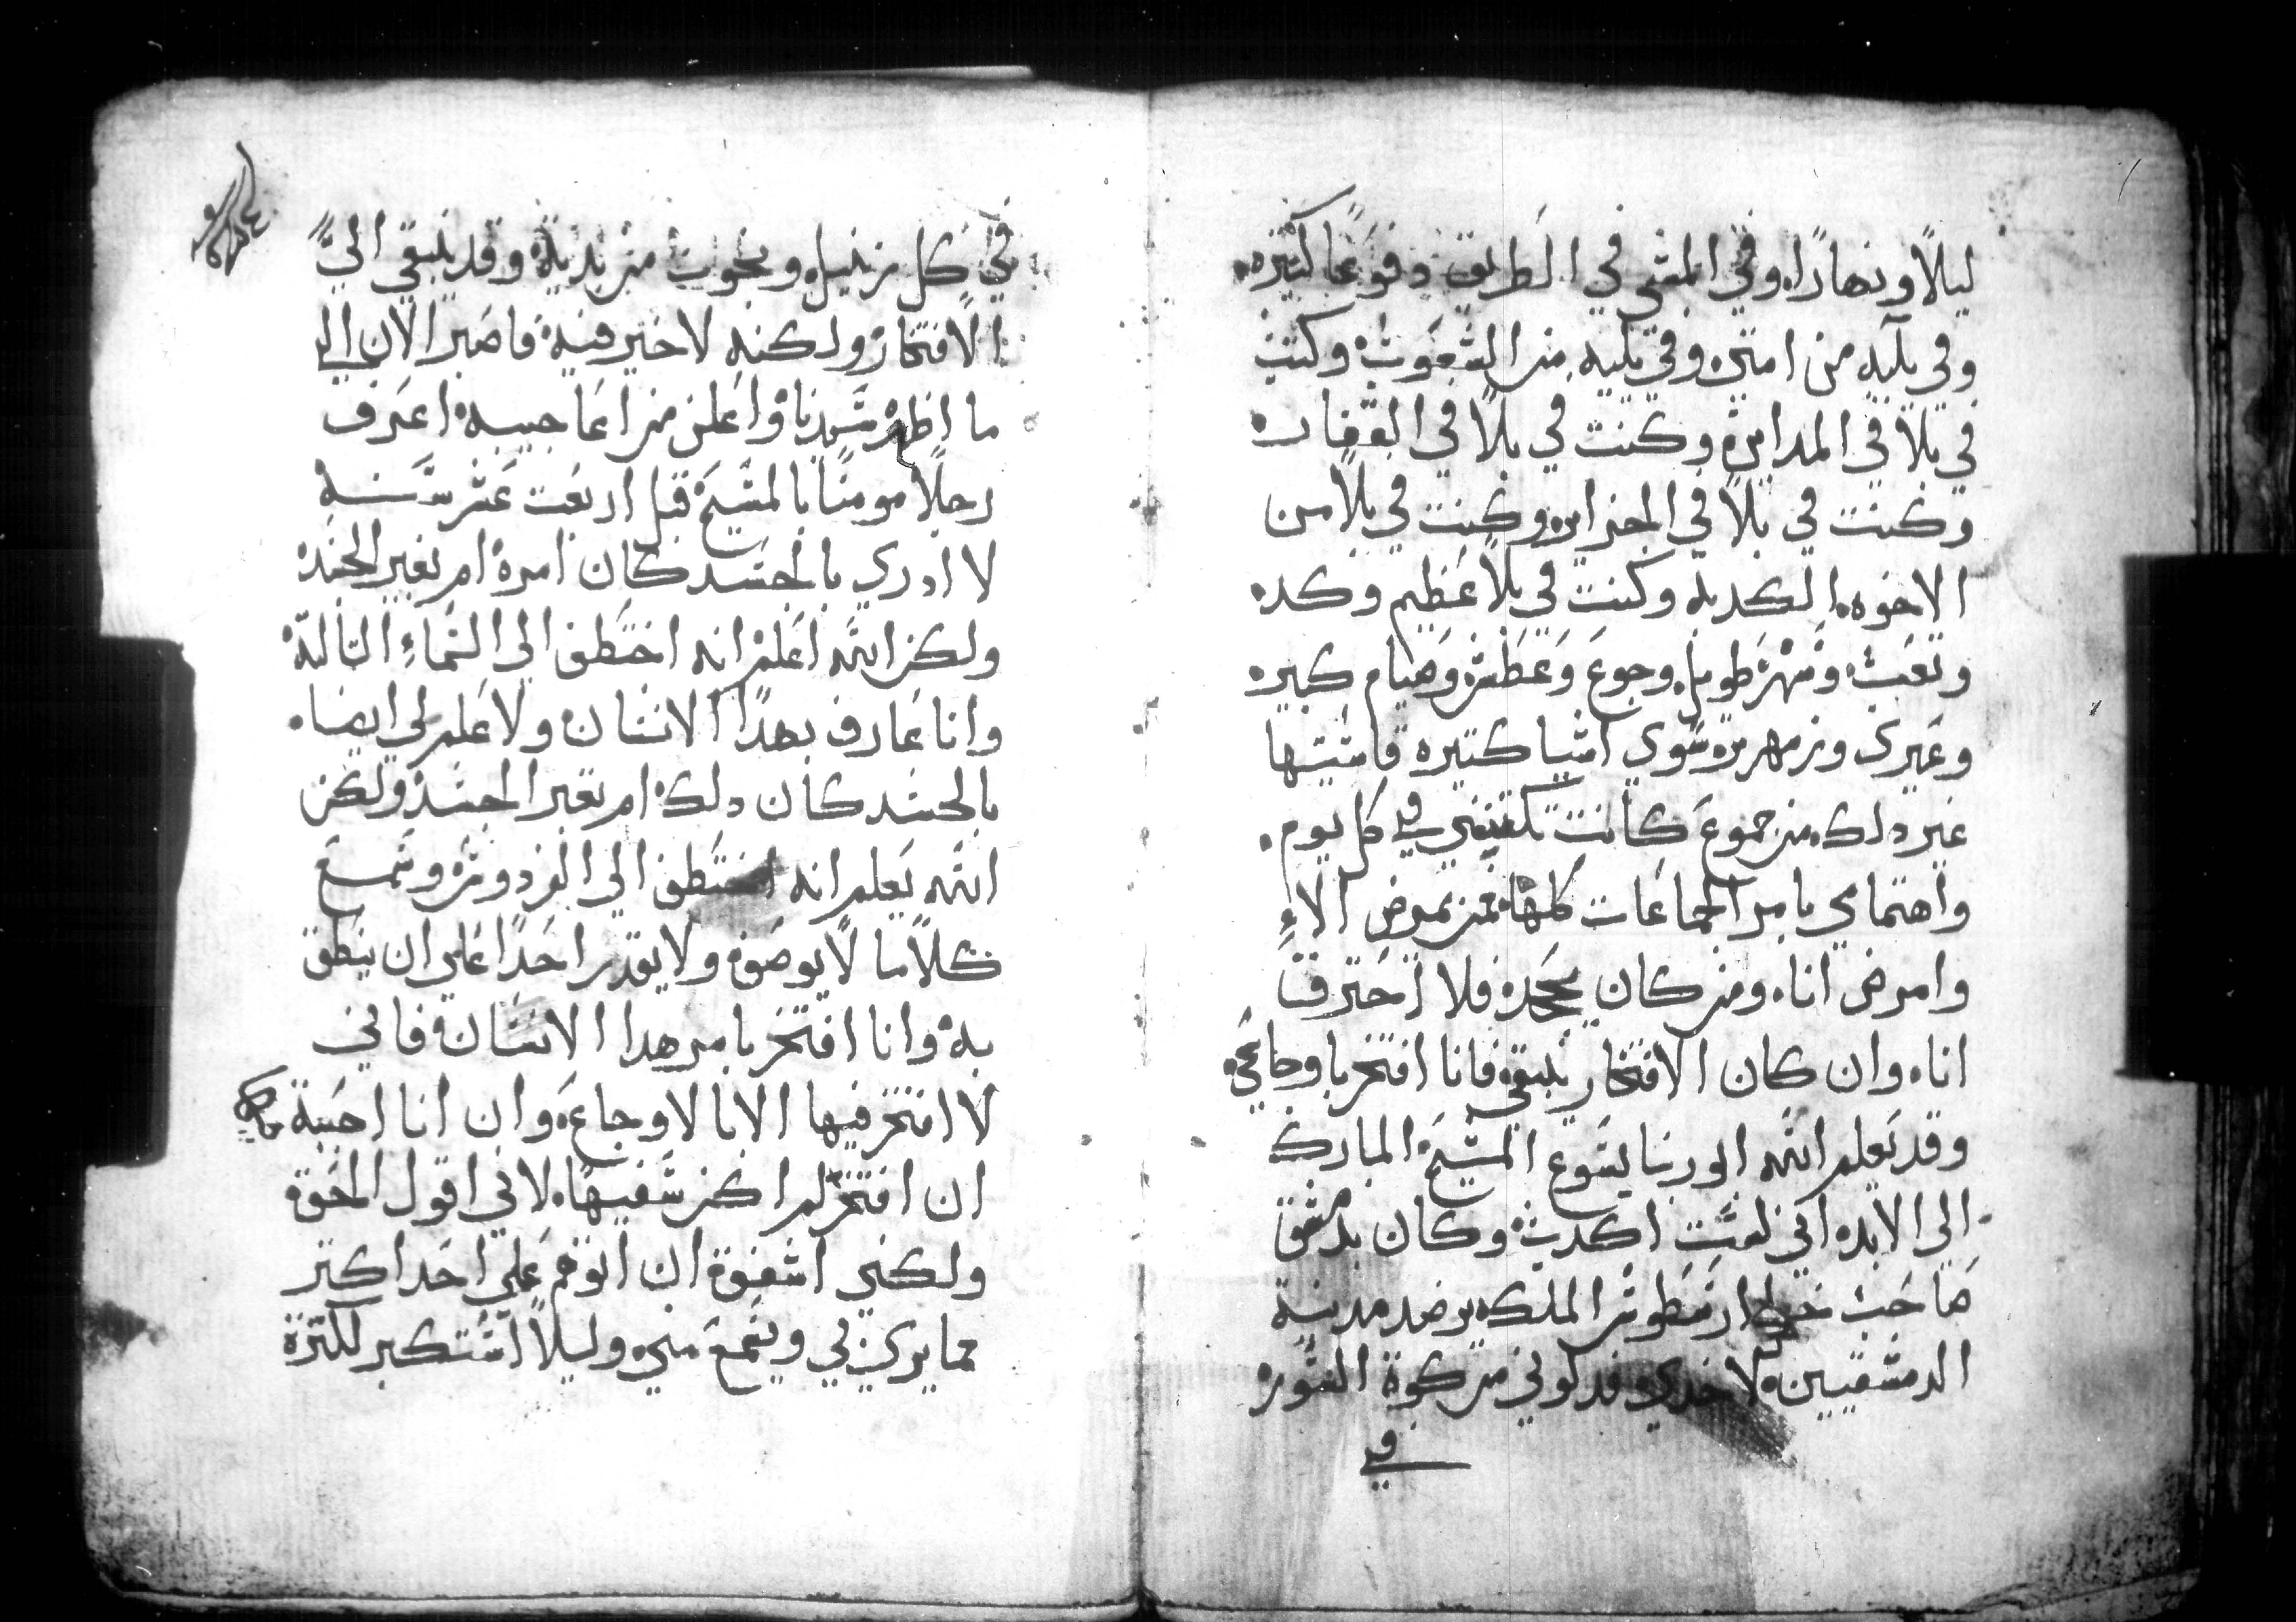 ليلاً ونهارًا. وفي المشي في الطريق دفوعًا كتيره.
وفي بليه من امتي. وفي بليه من الشعوت. وكنت
في بلا في المداين. وكنت في بلا في القفار.
وكنت في بلا في الجزاير. وكنت في بلا من
الاخوه الكدبه وكنت في بلا عظيم وكد.
وتعب. وسهر طويل وجوع وعطش وصيام كبير.
وعري وزمهرير سوي اشيا كتيره قاسيتها
غير دلك من جموع كانت تكتنفني في كل يوم.
واهتمامي بامر الجماعات كلها. فمن يمرض الاءِ
وامرض انا. ومن كان يجحد. فلا احترق
انا. وان كان الافتخار ينبغي فانا افتخر باوجاعي.
وقد يعلم الله ابو ربنا يسوع المسيح المبارك
الي الابد. اني لست اكدب. وكان بدمشق
صاحب ارسطوس الملك يرصد مدينة
الدمشقيين. لاخدي. فدلوني من كوة السور
في
في كل زنبيل ونجوت من يديه. وقد ينبغي اليَّ
الافتخار ولكنه لا خير فيه. فاصير الان الي
ما اظهر سيدنا واعلن من اعاجيبه. اعرف
رجلاً مومنًا بالمسيح قبل اربعت عشر سنه
لا ادري بالجسد كان امره ام بغير الجسد.
ولكن الله اعلم. انه اختطف الي السماءِ التالته
وانا عارف بهدا الانسان ولا علم لي ايضا.
بالجسد كان دلك. ام بغير الجسد. ولكن
الله يعلم انه اختطف الي الفردوس. وسمع
كلاما لا يوصف. ولا يقدر احدًا علي ان ينطق
به. وانا افتخر بامر هدا الانسان. فاني
لا افتخر فيها الا بالاوجاع. وان انا احببت
ان افتخر لم اكن سفيها. لاني اقول الحق
ولكني اشفق ان اتوهم علي احد اكتر
مما يري في ويسمع مني. وليلا استكبر لكترة